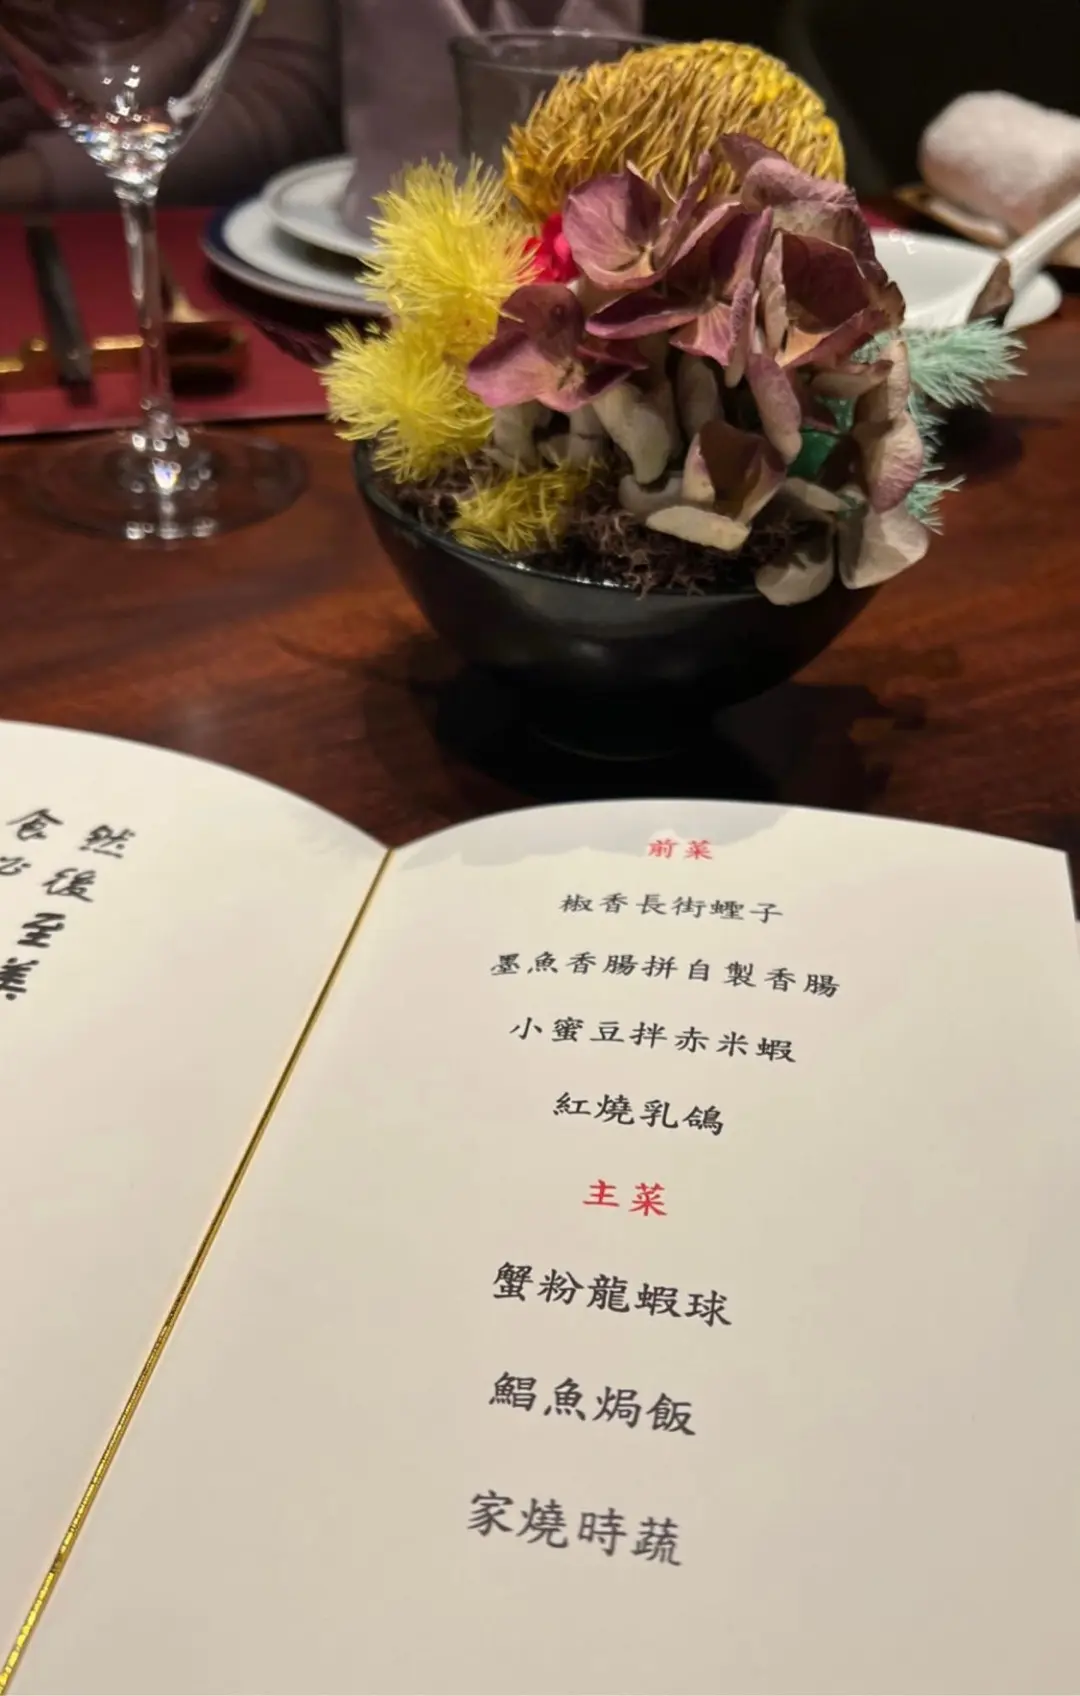 然後至美
食必
前菜
椒香長街蟶子
墨魚香腸拼自製香腸
小蜜豆拌赤米蝦
紅燒乳鴿
主菜
蟹粉龍蝦球
鯧魚焗飯
家燒時蔬